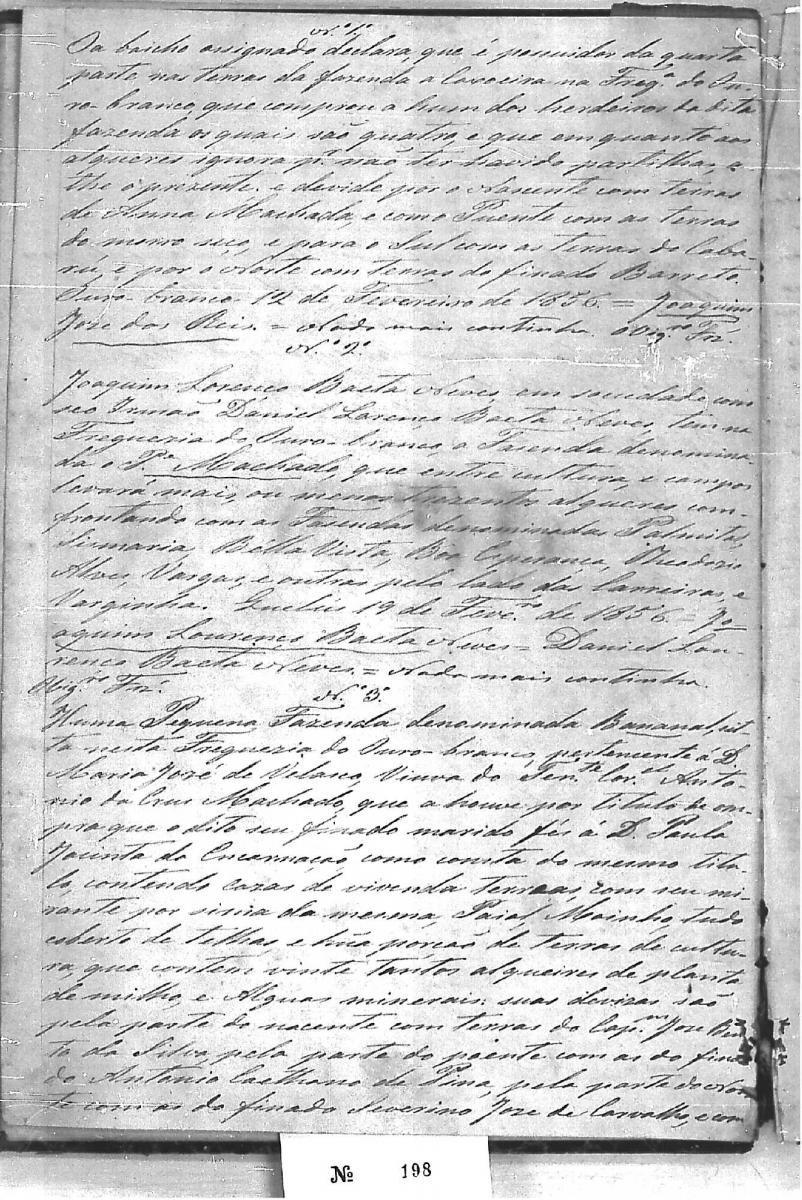 N.º 1º
O a baicho assignado declara, que é possuidor da quarta
parte nas terras da fazenda a Cavoeira na Freg.ª do Ou-
ro-branco, que comprou a hum dos herdeiros da dita
fazenda os quais são quatro, e que em quanto aos
alqueres ignora p.r não ter havido partilhas, a
the o prezente. e devide por o Nascente com terras
de Anna Machada, e com o Puente com as terras
do morro seco, e para o Sul com as terras do Caba-
rú, e por o Norte com terras do finado Barreto.
Ouro-branco 12 de Fevereiro de 1856. = Joaquim
Jose dos Reis. = Nada mais continha. O Vig.ro Frz.
N.º 2º
Joaquim Lorenco Baeta Neves, em sociedade com
seo Irmão Daniel Lorenco Baeta Neves, tem na
Freguezia do Ouro-branco, a Fazenda denomina-
da o P.e Machado, que entre cultura, e campos
levará mais, ou menos trezentos alqueres com-
frontando com as Fasendas denominadas Palmitas,
Sismaria, Bélla Vista, Boa Esperança, Theodozio
Alves, Vargas, e outras pelo lado das Carreiras, e
Varginha. Queluis 19 de Fevr.º de 1856. = Jo-
aquim Lourenço Baeta Neves = Daniel Lou-
renco Baeta Neves. = Nada mais continha.
O Vig.ro Frz.
N.º 3º
Huma Piquena Fazenda denominada Bananal, sit-
ta nesta Freguezia do Ouro-branco, pertencente á D.
Maria José de Velasco, Viuva do Ten.te Cor.el Anto-
nio da Crus Machado, que a houve por titulo de com-
pra que o dito seu finado marido fés á D. Paula
Jacinta da Encarnação como consta do mesmo titu-
lo, contendo cazas de vivenda terreas, com seu mi-
rante por sima da mesma, Paiol, Moinho, tudo
cuberto de telhas, e huã porcão de terras de cultu-
ra, que contem vinte tantos alqueires de planta
de milho, e Alguas minerais: suas devizas são
pela parte do nacente com terras do Cap.m Jose Ben-
to da Silva pela parte do poente com as do fina-
do Antonio Caethano de Pina, pela parte do Nor-
te com as do finado Severino Jose de Carvalho, e com
Nº 198